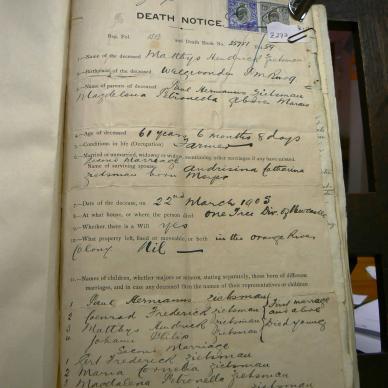 DEATH NOTICE.
Reg. Fol. and Death Book No.
1.—Name of the deceased Matthys Hendrik Ziebsman
2.—Birthplace of the deceased
3.—Names of parents of deceased Paul Hermanus Ziebsman
Magdalena Petronella
4.—Age of deceased 61 years 6 months 8 days
5.—Condition in life (Occupation) Farmer
6.—Married or unmarried, widower or widow, mentioning other marriages if any have existed.
Second marriage
Name of surviving spouse Andresina Catharina
Ziebsman born Meyer
7.—Date of the decease, on 22nd March 1903
8.—At what house, or where the person died One Tree Div. of Newcastle
9.—Whether there is a Will yes
10.—What property left, fixed or moveable, or both in the Orange River
Colony Nil —
11.—Names of children, whether majors or minors, stating separately, those born of different
marriages, and in case any deceased then the names of their representatives or children
1 Paul Hermanus Ziebsman First marriage
2 Conrad Frederick Ziebsman are alive
3 Matthys Hendrik Ziebsman Died young
4 Johann Philip Ziebsman
Second Marriage
1 Frederick Ziebsman
2 Maria Ziebsman
3 Magdalena Petronella Ziebsman